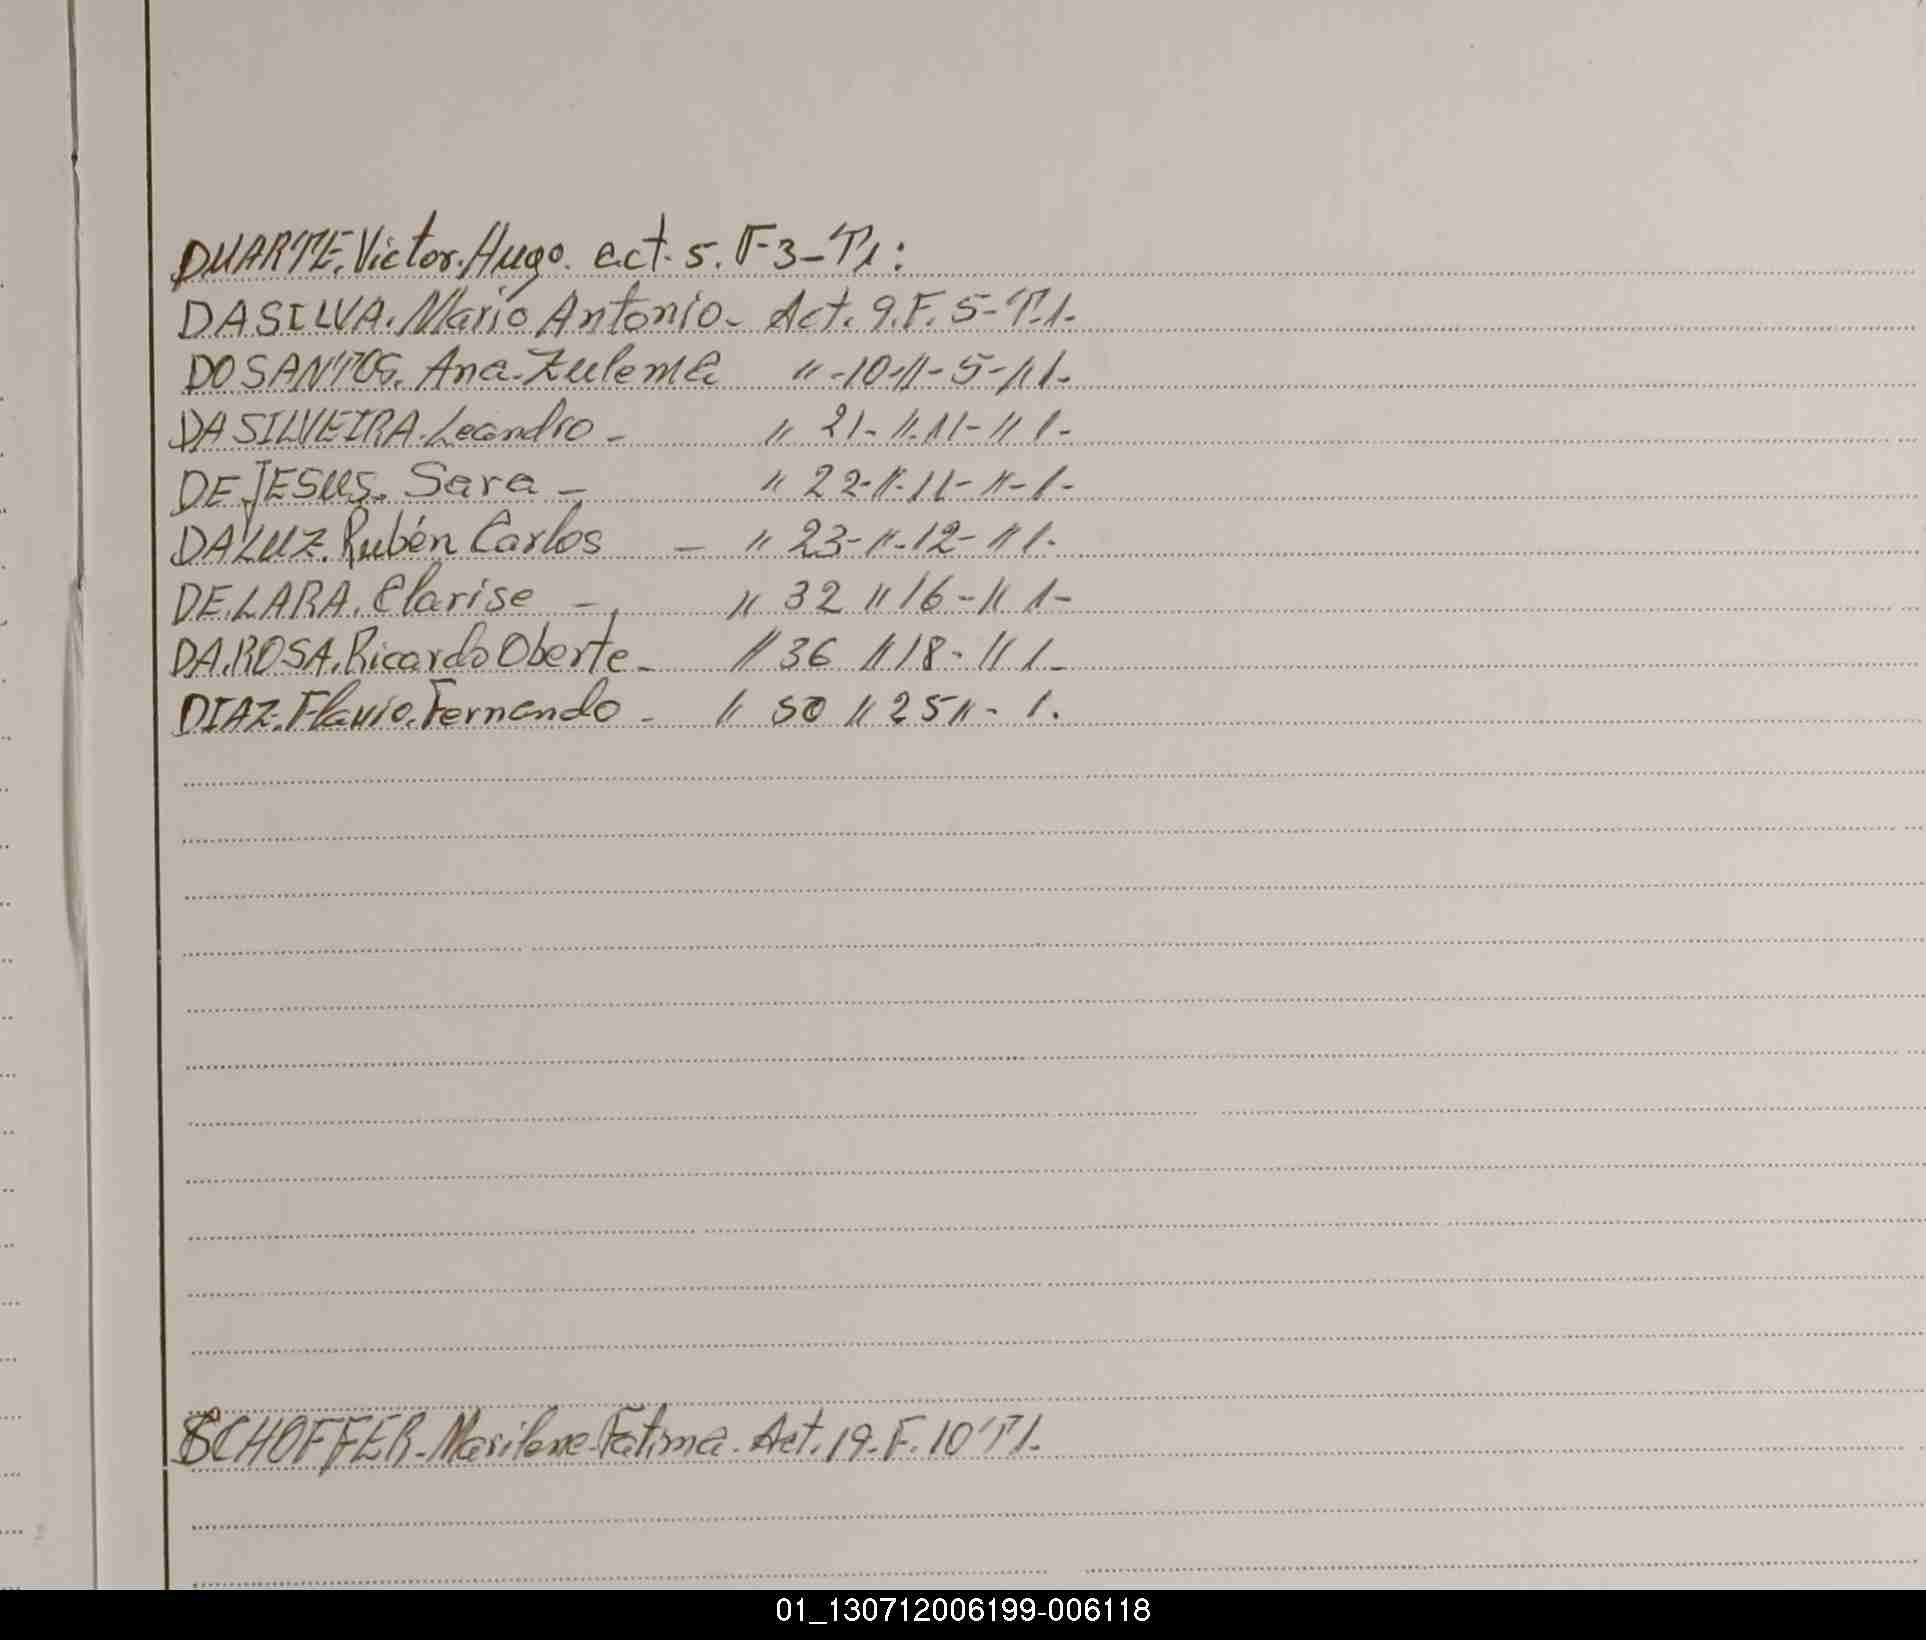 DUARTE. Victor. Hugo. act. 5. F 3 - T1:
DASILVA. Mario Antonio - Act. 9. F. 5 - T. 1.
DO SANTOS. Ana. Zulema " - 10 - " - 5 - " 1.
DA SILVEIRA. Leandro - " 21 - ". 11 - " 1 -
DE JESUS. Sara - " 22 - ". 11 - " - 1 -
DA LUZ. Rubén Carlos - " 23 - ". 12 - " 1.
DE. LARA. Clarise - " 32 " 16 - " 1 -
DA. ROSA. Ricardo Oberte - " 36 " 18 - " 1 -
DIAZ. Flavio. Fernando - " 50 " 25 " - 1.
SCHOFFER - Marilene. Fatima. Act. 19. F. 10 T1.
01_130712006199-006118